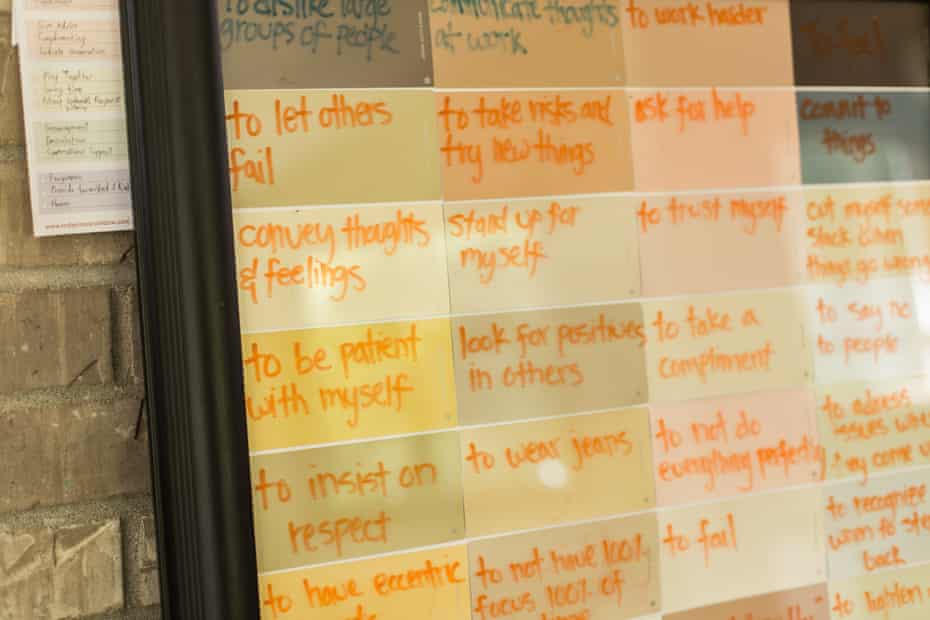 to dislike large
groups of people
communicate thoughts
at work
to work harder
to feel
to let others
fail
to take risks and
try new things
ask for help
commit to
things
convey thoughts
& feelings
stand up for
myself
to trust myself
cut myself some
slack when
things go wrong
to be patient
with myself
look for positives
in others
to take a
compliment
to say no
to people
to insist on
respect
to wear jeans
to not do
everything perfectly
to adress
issues
they come
to have eccentric
to not have 100%
focus 100% of
to fail
to recognize
back
to lighten
Give Advice
Complimenting
Play Together
Encouragement